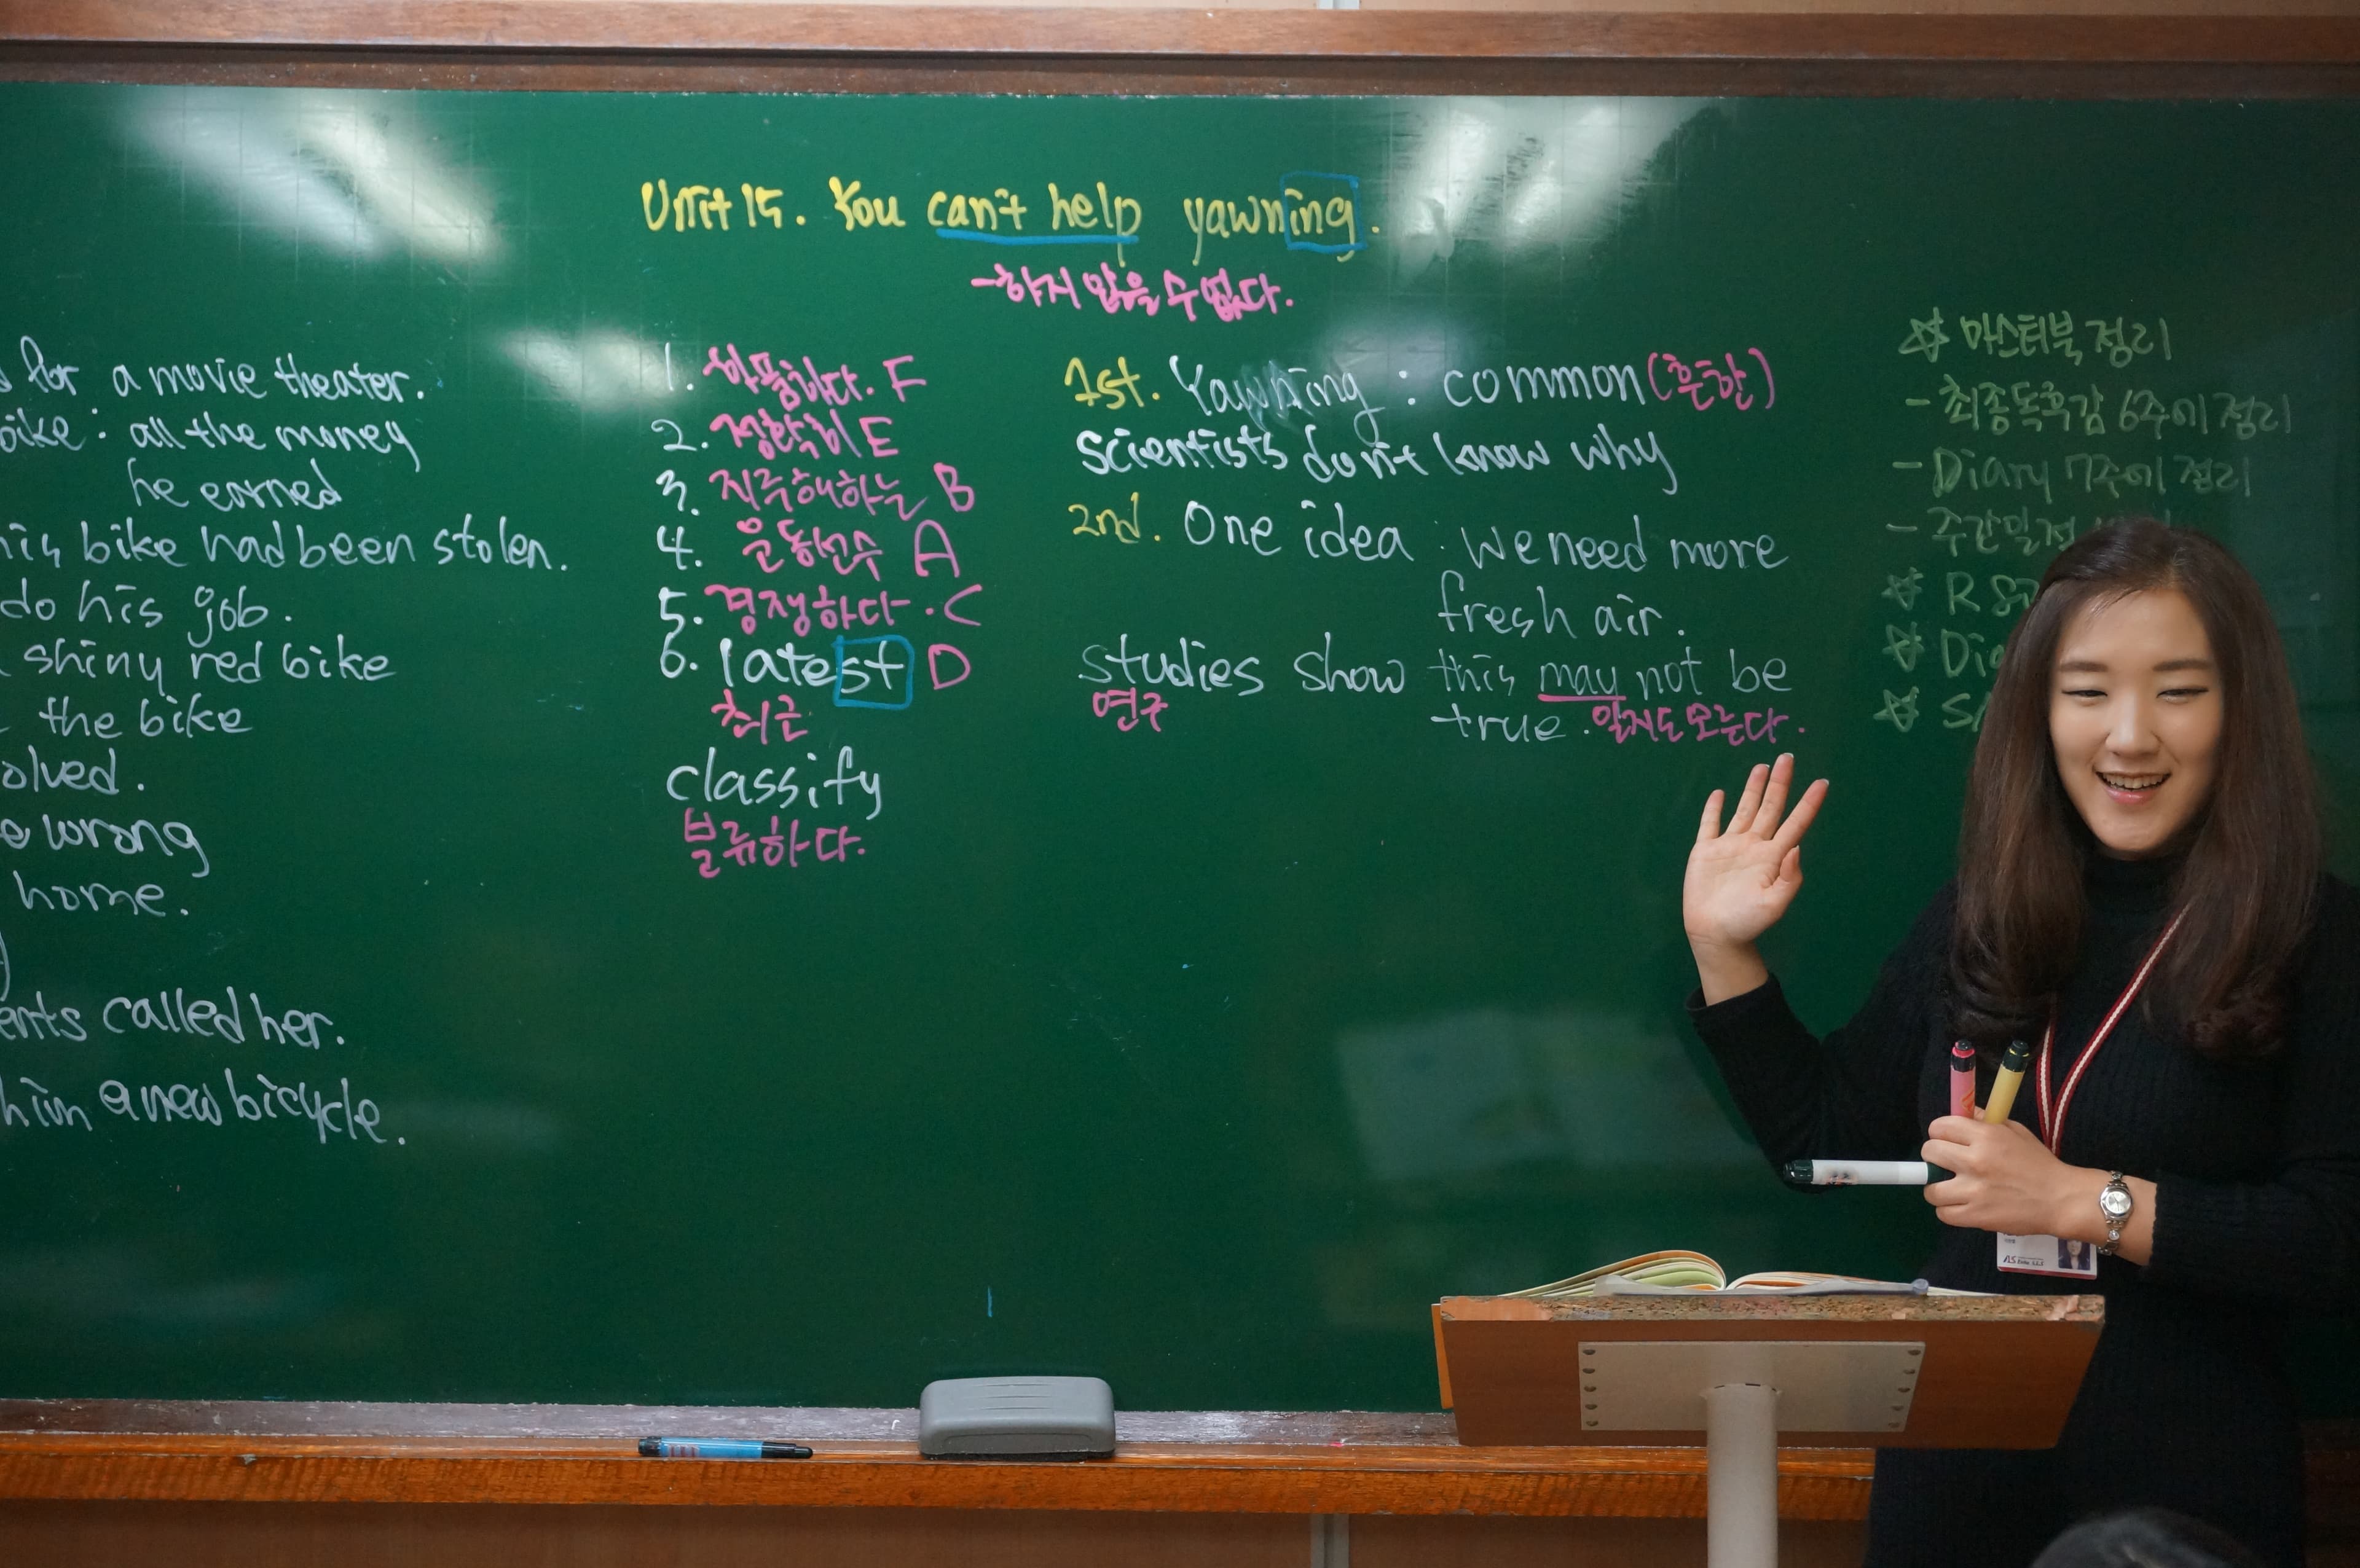 Unit 15. You can't help yawning.
-하지 않을 수 없다.
for a movie theater.
bike : all the money
he earned
his bike had been stolen.
do his job.
shiny red bike
the bike
olved.
wrong
home.
ents called her.
him a new bicycle.
1. 하품하다. F
2. 정확히 E
3. 지루해하는 B
4. 운동선수 A
5. 경쟁하다. C
6. latest D
최근
classify
분류하다.
1st. Yawning : common (흔한)
scientists don't know why
2nd. One idea : we need more
fresh air.
studies show this may not be
연구
true. 일지도 모른다.
☆ 마스터북 정리
- 최종독후감 6주에 정리
- Diary 7주에 정리
- 주간
☆ R
☆ Dia
☆